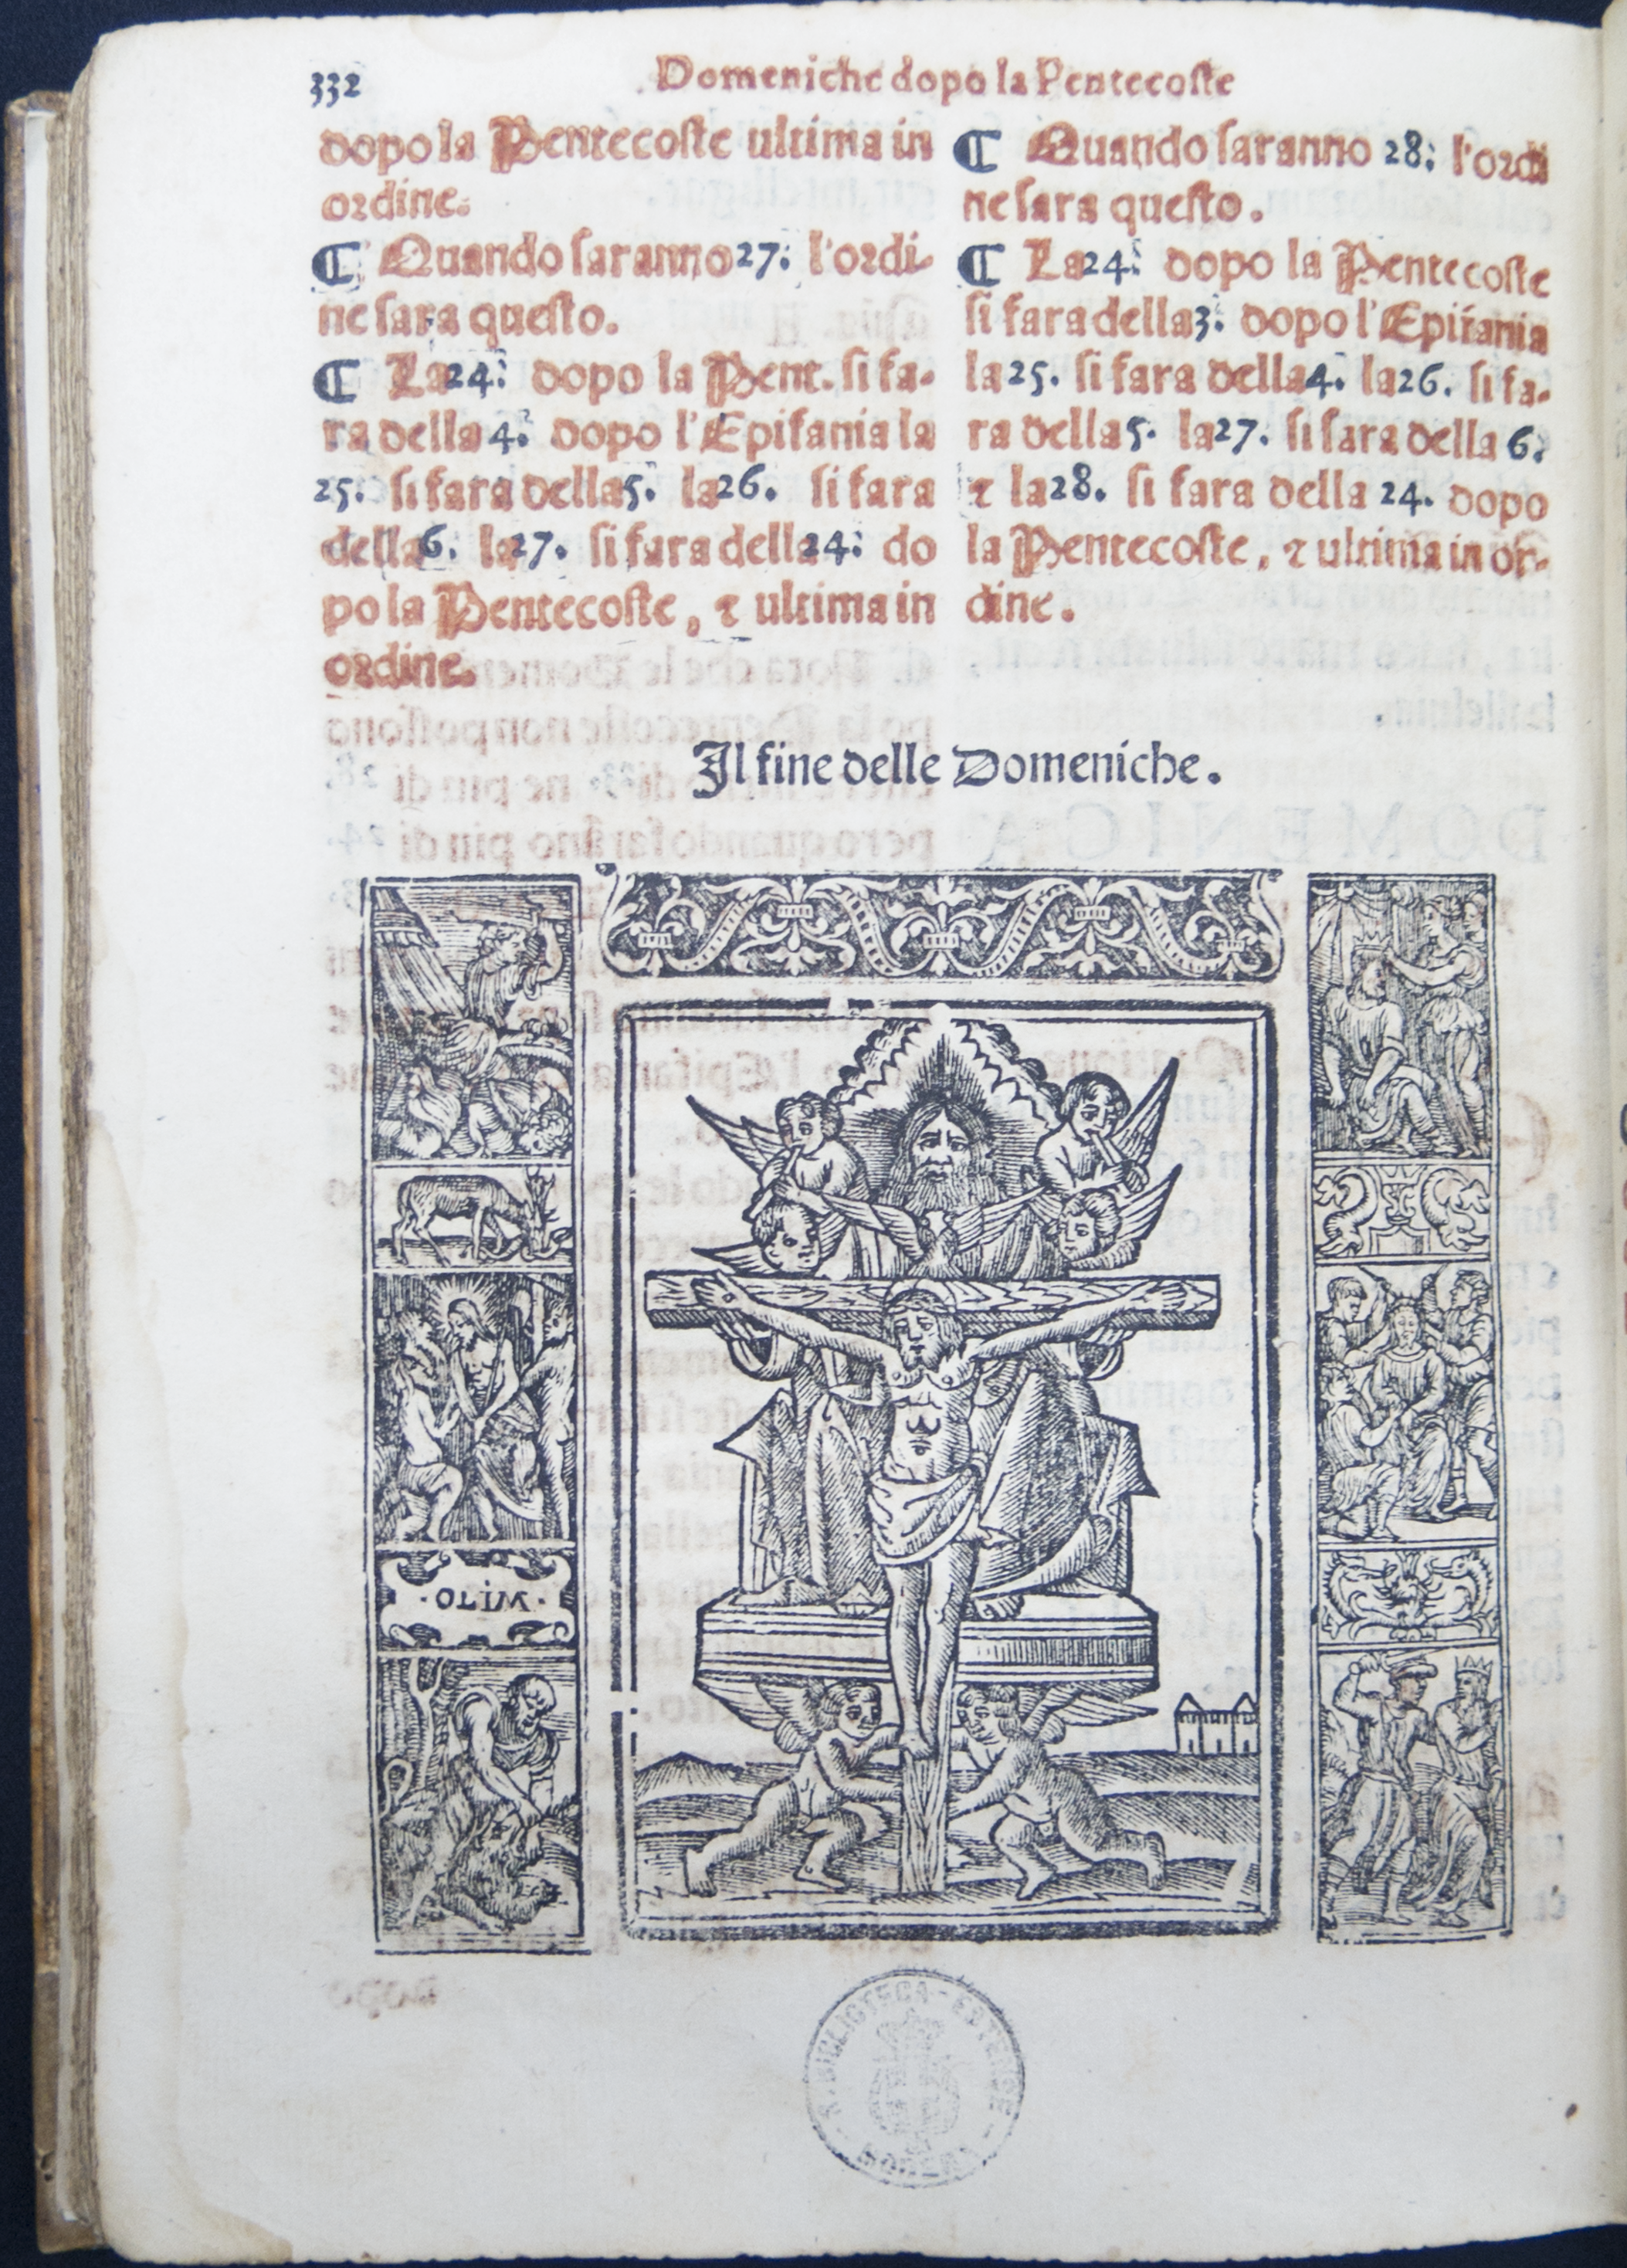 332
Domeniche dopo la Pentecoste
dopo la Pentecoste ultima in
ordine.
¶ Quando saranno 27: l'ordi-
ne sara questo.
¶ La 24: dopo la Pent. si fa-
ra della 4. dopo l'Epifania la
25. si fara della 5. la 26. si fara
della 6. la 27. si fara della 24: do
po la Pentecoste, & ultima in
ordine.
¶ Quando saranno 28: l'ordi
ne sara questo.
¶ La 24: dopo la Pentecoste
si fara della 3: dopo l'Epifania
la 25. si fara della 4. la 26. si fa-
ra della 5. la 27. si fara della 6.
& la 28. si fara della 24. dopo
la Pentecoste, & ultima in or-
dine.
Il fine delle Domeniche.
R. BIBLIOTECA ESTENSE
MODENA